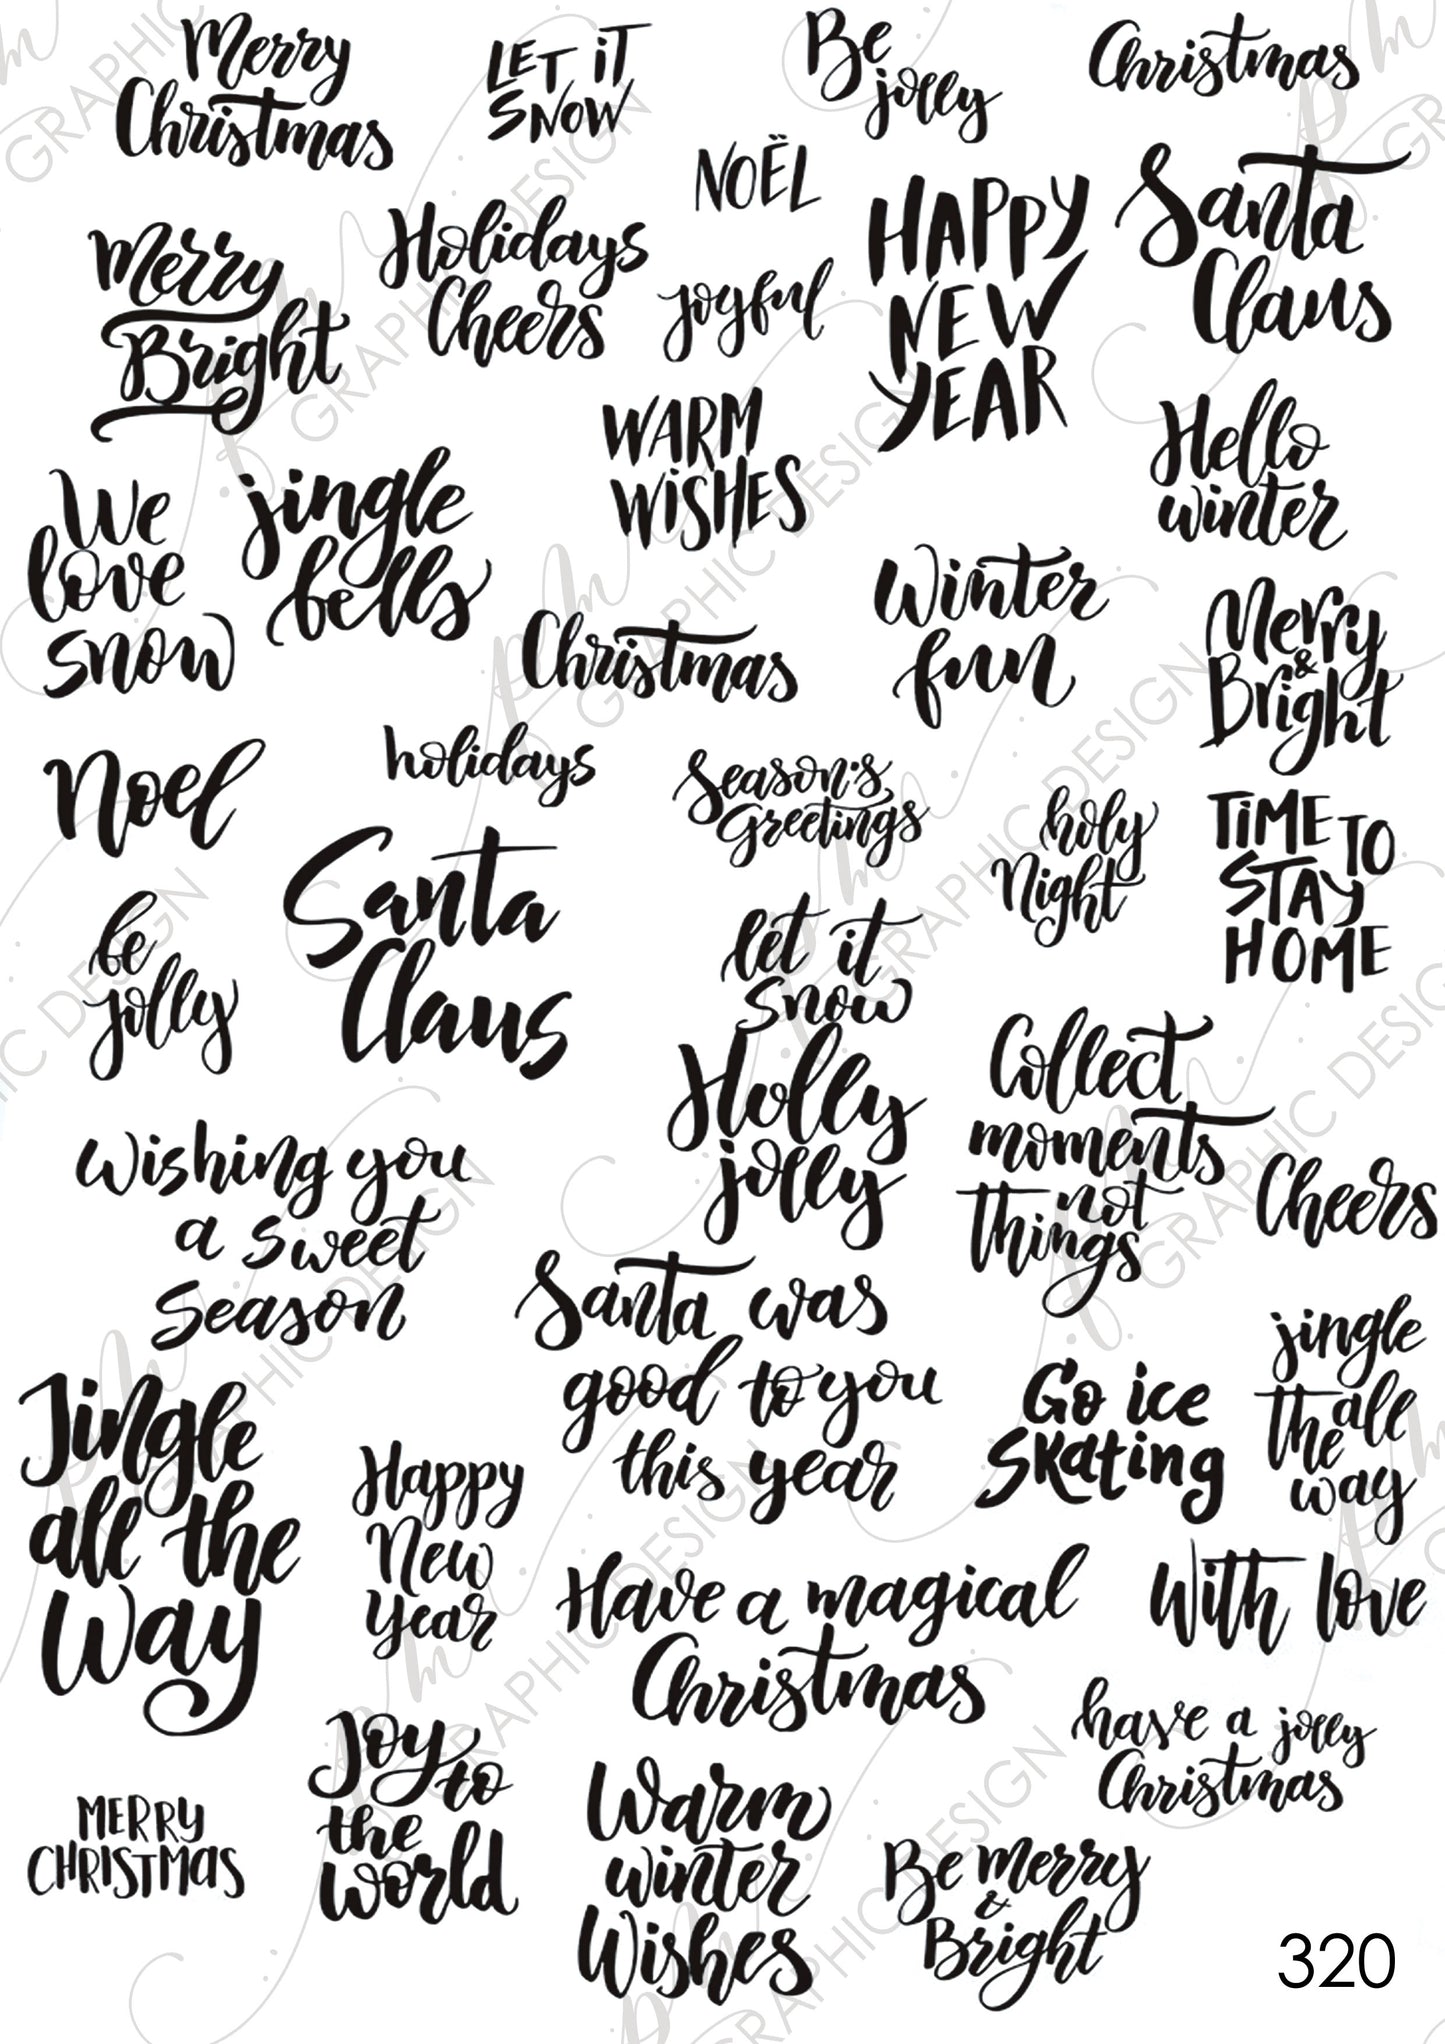 Merry
Christmas
LET iT
SNOW
Be
jolly
Christmas
NOËL
Merry
Bright
Holidays
Cheers
joyful
HAPPY
NEW
YEAR
Santa
Claus
WARM
WiSHES
Hello
winter
We
love
snow
jingle
bells
Christmas
Winter
fun
Merry
&
Bright
Noel
holidays
Season's
Greetings
holy
Night
TiME TO
STAY
HOME
Santa
Claus
be
jolly
let it
snow
Holly
jolly
Collect
moments
not
things
Cheers
Wishing you
a sweet
Season
Santa was
good to you
this year
Go ice
Skating
jingle
all
the
way
Jingle
all the
Way
Happy
New
Year
Have a magical
Christmas
With love
Joy to
the
world
have a jolly
Christmas
MERRY
CHRISTMas
Warm
winter
Wishes
Be merry
&
Bright
320
GRAPHIC DESIGN
GRAPHIC DESIGN
GRAPHIC DESIGN
GRAPHIC DESIGN
GRAPHIC DESIGN
GRAPHIC DESIGN
GRAPHIC DESIGN
GRAPHIC DESIGN